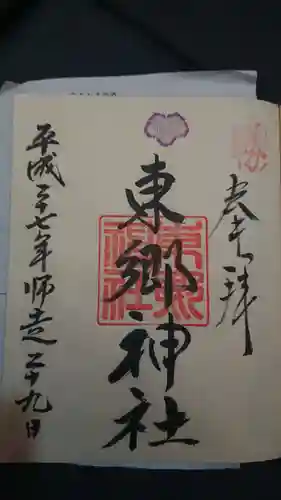 奉拝
勝
東郷神社
東郷神社
平成二十七年師走二十九日